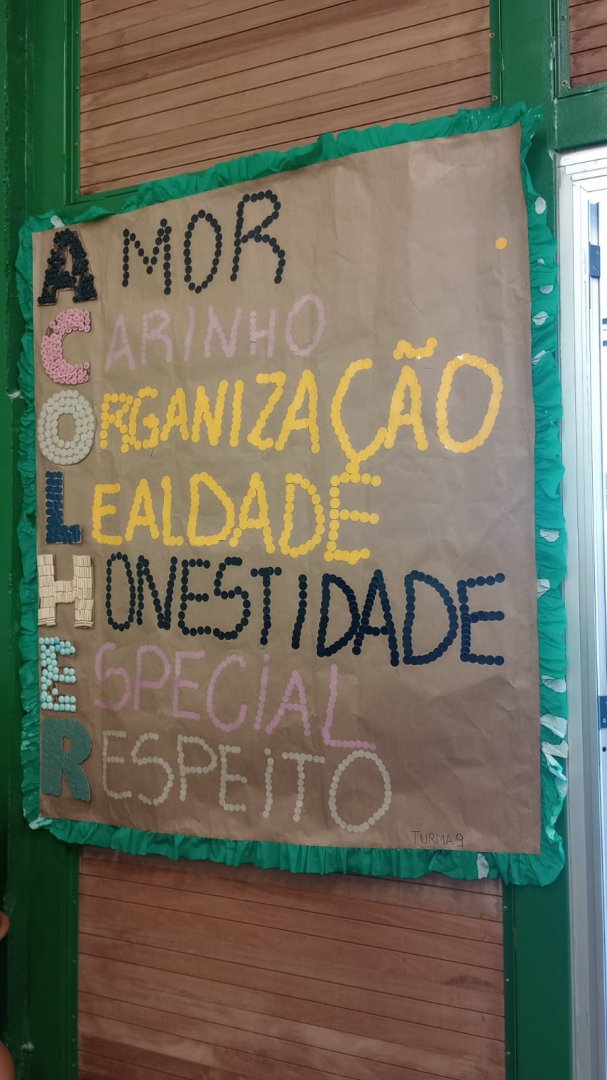 AMOR
CARINHO
ORGANIZAÇÃO
LEALDADE
HONESTIDADE
ESPECIAL
RESPEITO
TURMA.9